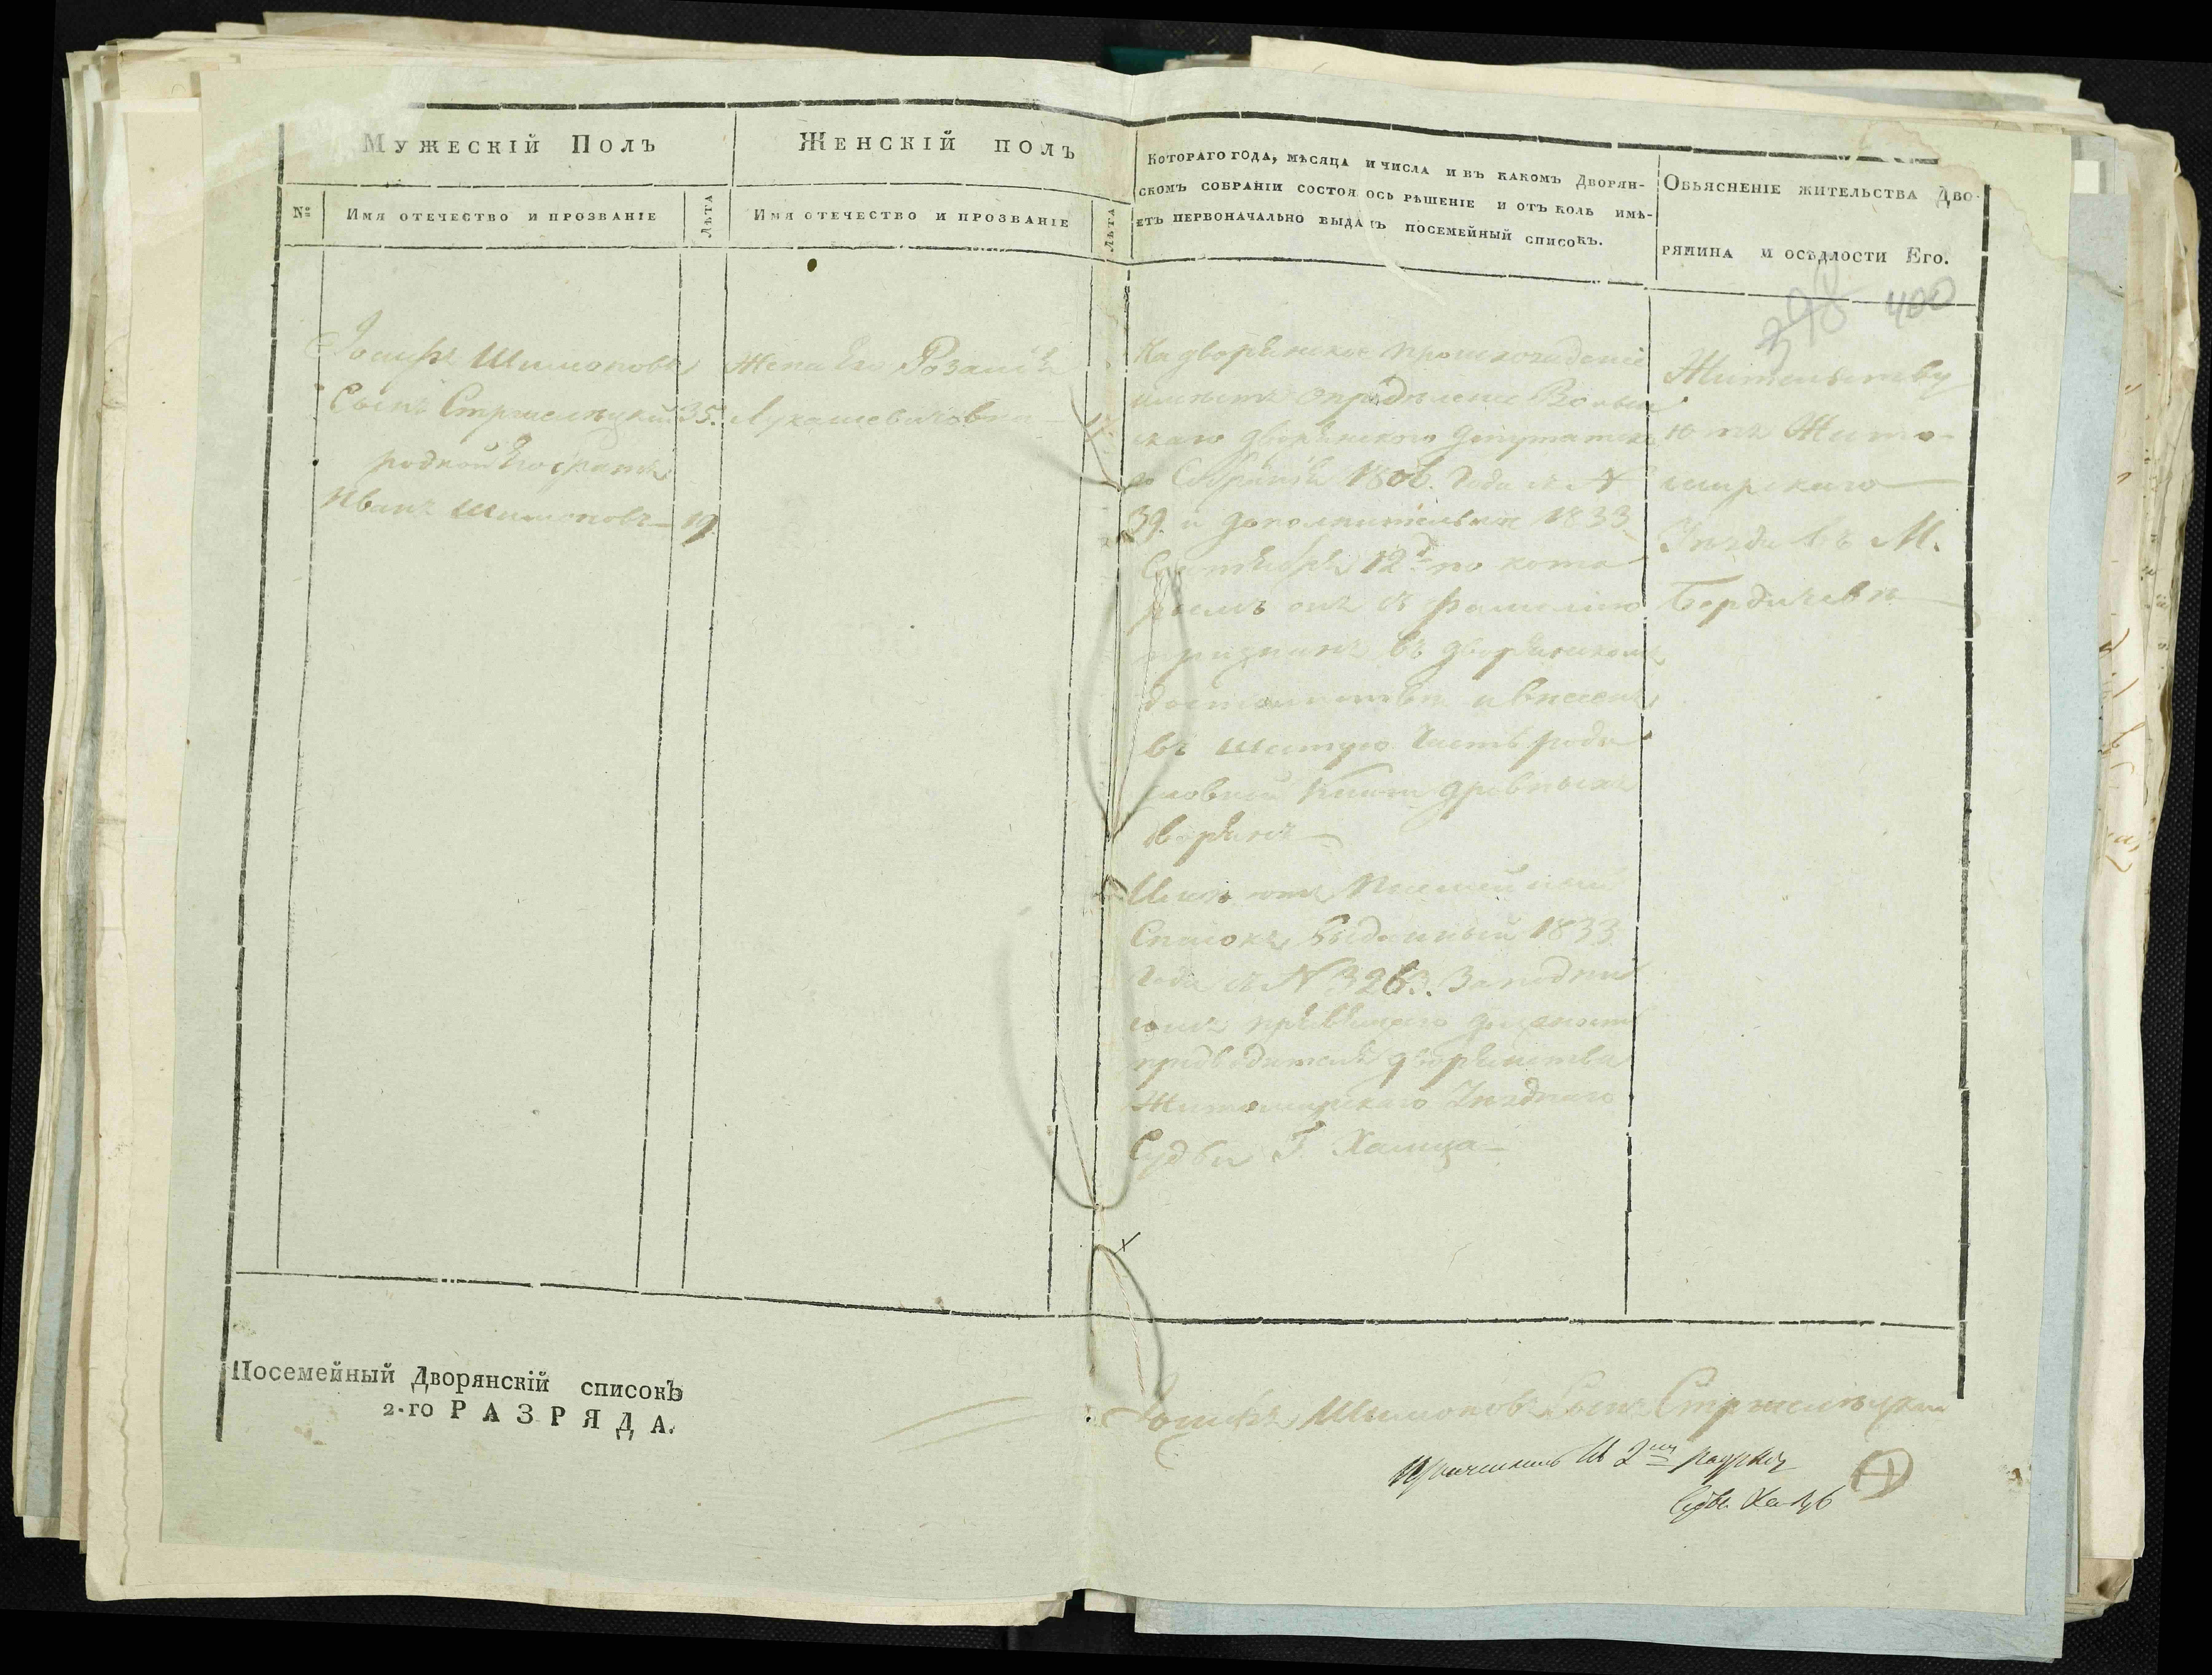 Мужескій Полъ
Женскій полъ
Котораго года, мѣсяца и числа и въ какомъ Дворян-
скомъ собраніи состоялось рѣшеніе и отъ коль имѣ-
етъ первоначально выданъ посемейный списокъ.
Объясненіе жительства Дво-
рянина и осѣдлости Его.
№ Имя отечество и прозваніе Лѣта
Имя отечество и прозваніе Лѣта
398 400
Іосифъ Шимоновъ
Сынъ Стржелецкий 35.
родной Его братъ
Иванъ Шимоновъ 19
Жена Его Розалія
Лукашевичовна
На дворянское происхожденіе
имѣетъ опредѣленіе Волын
скаго дворянского депутатска
го Собранія 1806. Года за №
39. и дополнительное 1833
Сентября 12 д по кото
рымъ онъ съ фамилією
признанъ въ дворянскомъ
достоинствѣ и внесенъ
въ Шестую Часть родо
словной Книги древныхъ
дворянъ
Имѣетъ Посемейный
Списокъ Выданный 1833
Года за № 3263. За подпи
сомъ правящего должность
предводителя дворянства
Житомирскаго Уѣзднаго
Судьи Г.
Жительству
ютъ Жито-
мирскаго
Уѣзда въ М.
Бердичевѣ
Посемейный Дворянскій списокЪ
2-го РАЗРЯДА.
Іосифъ Шимоновъ Сынъ Стржелецкий
2мъ
Судья